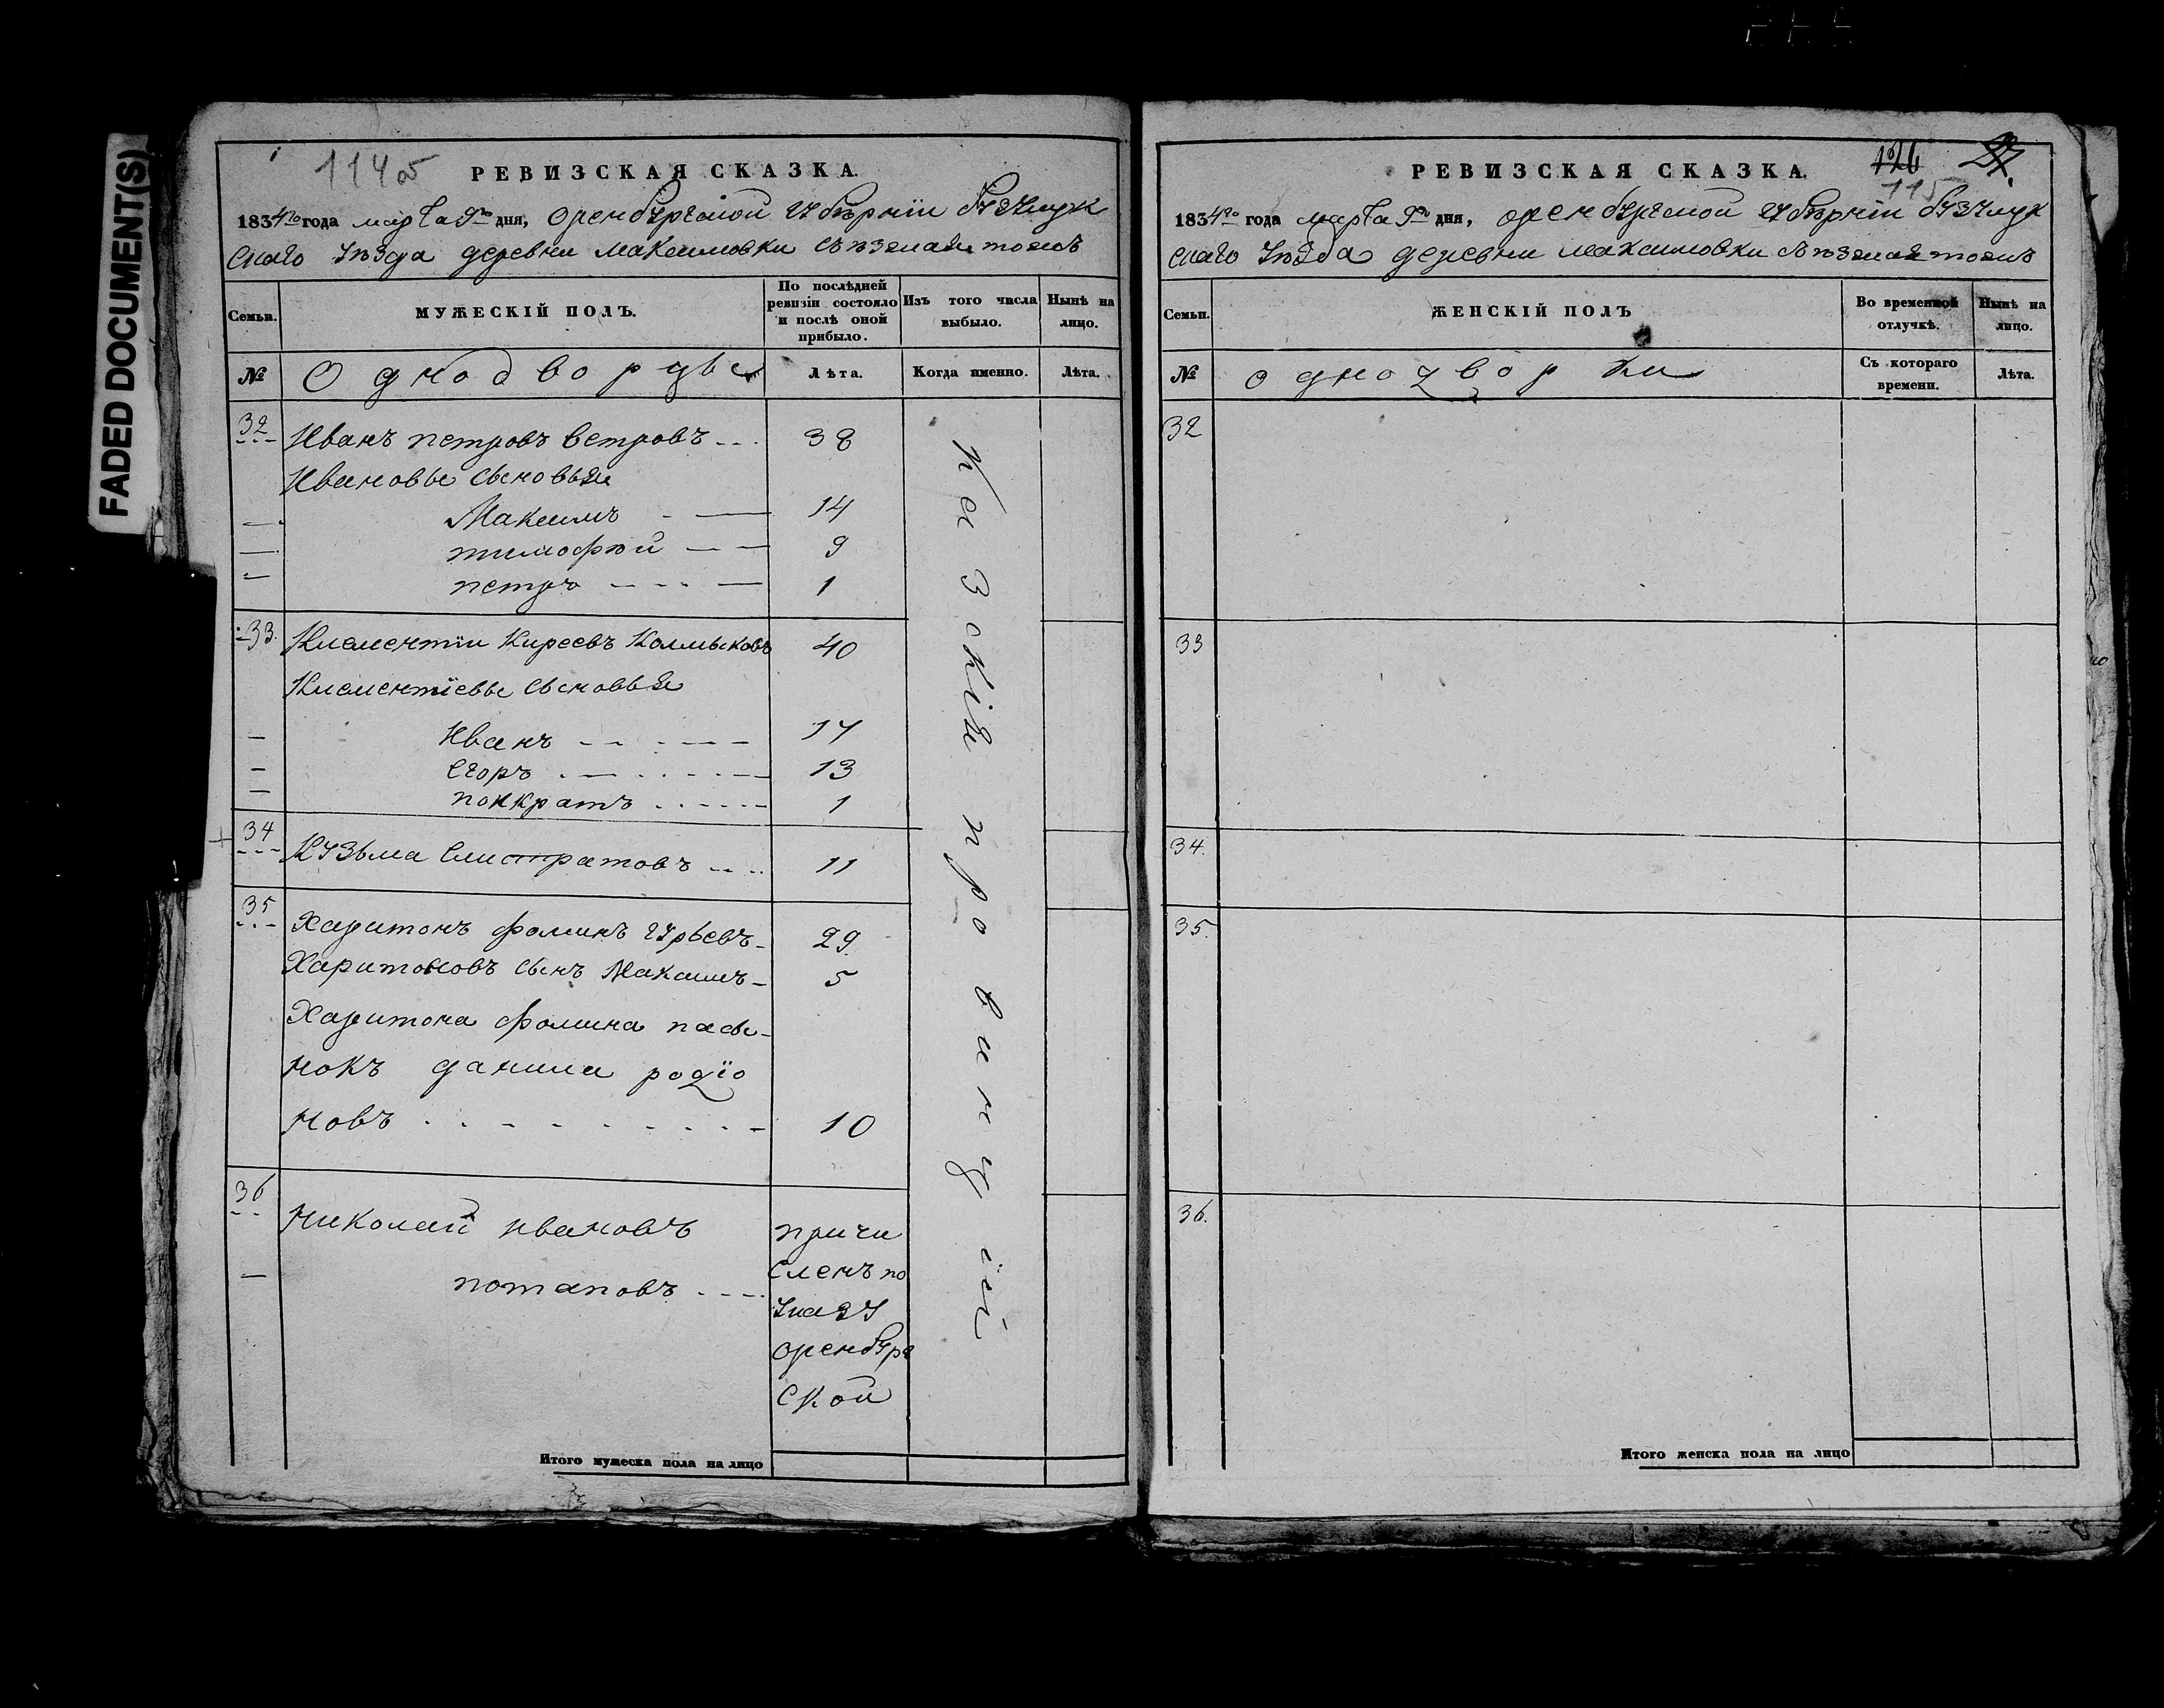 FADED DOCUMENT(S)
114 об
РЕВИЗСКАЯ СКАЗКА.
1834го года марта 9го дня, оренбургской губернiи бузулук
скаго уезда деревни максимовки
Семьи.
МУЖЕСКІЙ ПОЛЪ.
По послѣдней ревизіи состояло и послѣ оной прибыло.
Изъ того числа выбыло.
Нынѣ на лицо.
№
Однодворцы
Лѣта.
Когда именно.
Лѣта.
32
Иванъ петровъ ветровъ
38
Ивановы сыновья
Максимъ
14
тимофѣй
9
петръ
1
33.
Клементiи Киреевъ Колмыковъ
40
Клементiевы сыновья
Иванъ
17
Егоръ
13
понкратъ
1
34
Кузьма Елистратовъ
11
35
Харитонъ фоминъ гурьевъ
29
Харитоновъ сынъ Максимъ
5
Харитона фомина пасы-
нокъ данила родiо
новъ
10
36
Николай ивановъ
потаповъ
причи
сленъ по
указу
оренбург
ской
Итого мужеска пола на лицо
126
115
РЕВИЗСКАЯ СКАЗКА.
1834го года марта 9го дня, оренбургской губернiи бузулук
скаго уезда деревни максимовки
Семьи.
ЖЕНСКІЙ ПОЛЪ
Во временной отлучкѣ.
Нынѣ на лицо.
№
однодворки
Съ котораго времени.
Лѣта.
32
33
34.
35.
36.
Итого женска пола на лицо